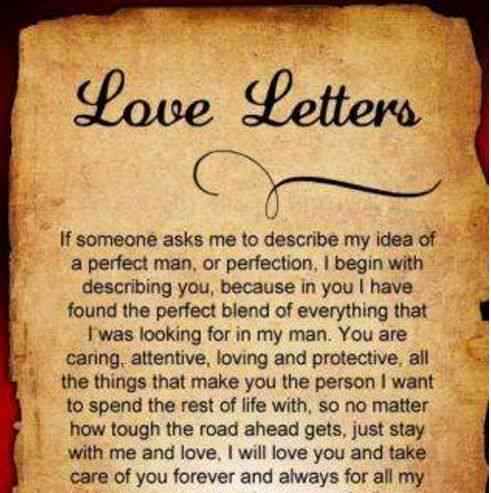 Love Letters
If someone asks me to describe my idea of
a perfect man, or perfection, I begin with
describing you, because in you I have
found the perfect blend of everything that
I was looking for in my man. You are
caring, attentive, loving and protective, all
the things that make you the person I want
to spend the rest of life with, so no matter
how tough the road ahead gets, just stay
with me and love, I will love you and take
care of you forever and always for all my